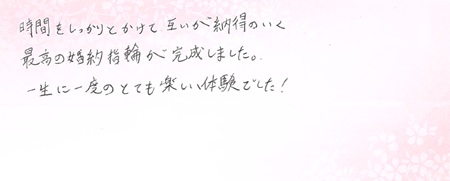 時間をしっかりとかけて互いが納得のいく
最高の婚約指輪が完成しました。
一生に一度のとても楽しい体験でした！